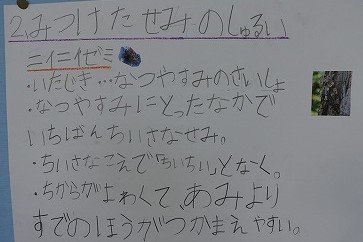 2.みつけたせみのしゅるい
ニイニイゼミ
・いたじき…なつやすみのさいしょ
・なつやすみにとったなかで
いちばんちいさなせみ。
・ちいさなこえで「ちいちい」となく。
・ちからがよわくて、あみより
すでのほうがつかまえやすい。